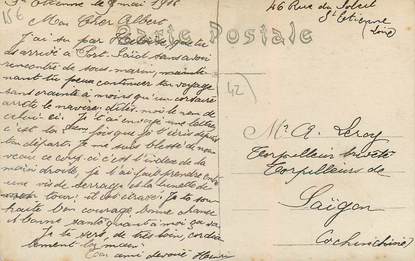 St Etienne le mai 1916
156
Mon Cher Albert
J'ai su par que tu
es arrivé à Port-Saïd sans avoir
rencontré de sous-marin, mainte-
nant tu peux continuer ton voyage
sans crainte à moins qu'un corsaire
arrête le navire, dites-moi le nom de
celui-ci. Je t'ai envoyé une lettre,
c'est la fois que je t'écris depuis
ton départ. Je me suis blessé de nou-
veau ce coup-ci c'est l'index de la
main droite, je l'ai fait prendre entre
une vis de serrage et la lunette de
tour; il est écrasé. Je te sou-
haite bon courage, bonne chance
et bonne santé quant à moi ça va.
Je te serre, de très loin, cordia-
lement la main.
Ton ami dévoué Henri
Carte Postale
46 Rue du Soleil
St Etienne
(Loire)
42
Mr A. Leroy
Torpilleur breveté
Torpilleurs de
Saïgon
Cochinchine